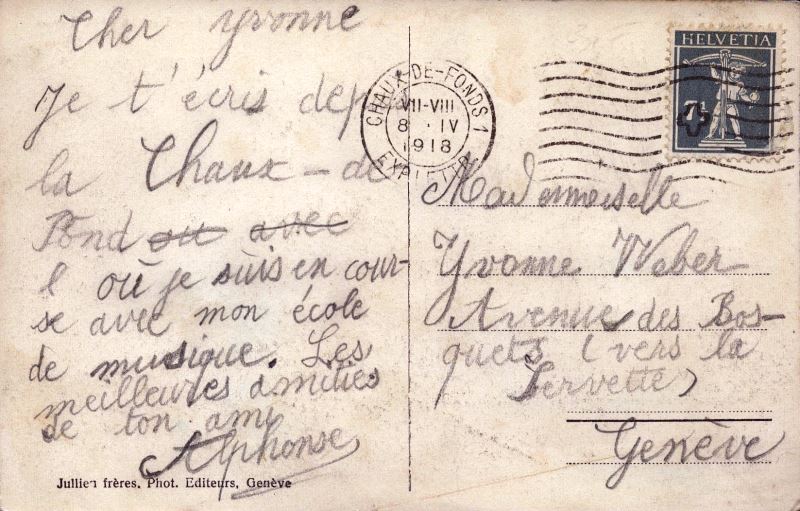 Cher Yvonne
Je t'écris dep
la Chaux-de
Fond ou avec
où je suis en cour-
se avec mon école
de musique. Les
meilleures amitiés
de ton ami
Alphonse
Jullien frères, Phot. Editeurs, Genève
CHAUX-DE-FONDS 1
VII-VIII
8 IV
1918
HELVETIA
7½
Mademoiselle
Yvonne Weber
Avenue des Bos-
quets (vers la
Servette)
Genève